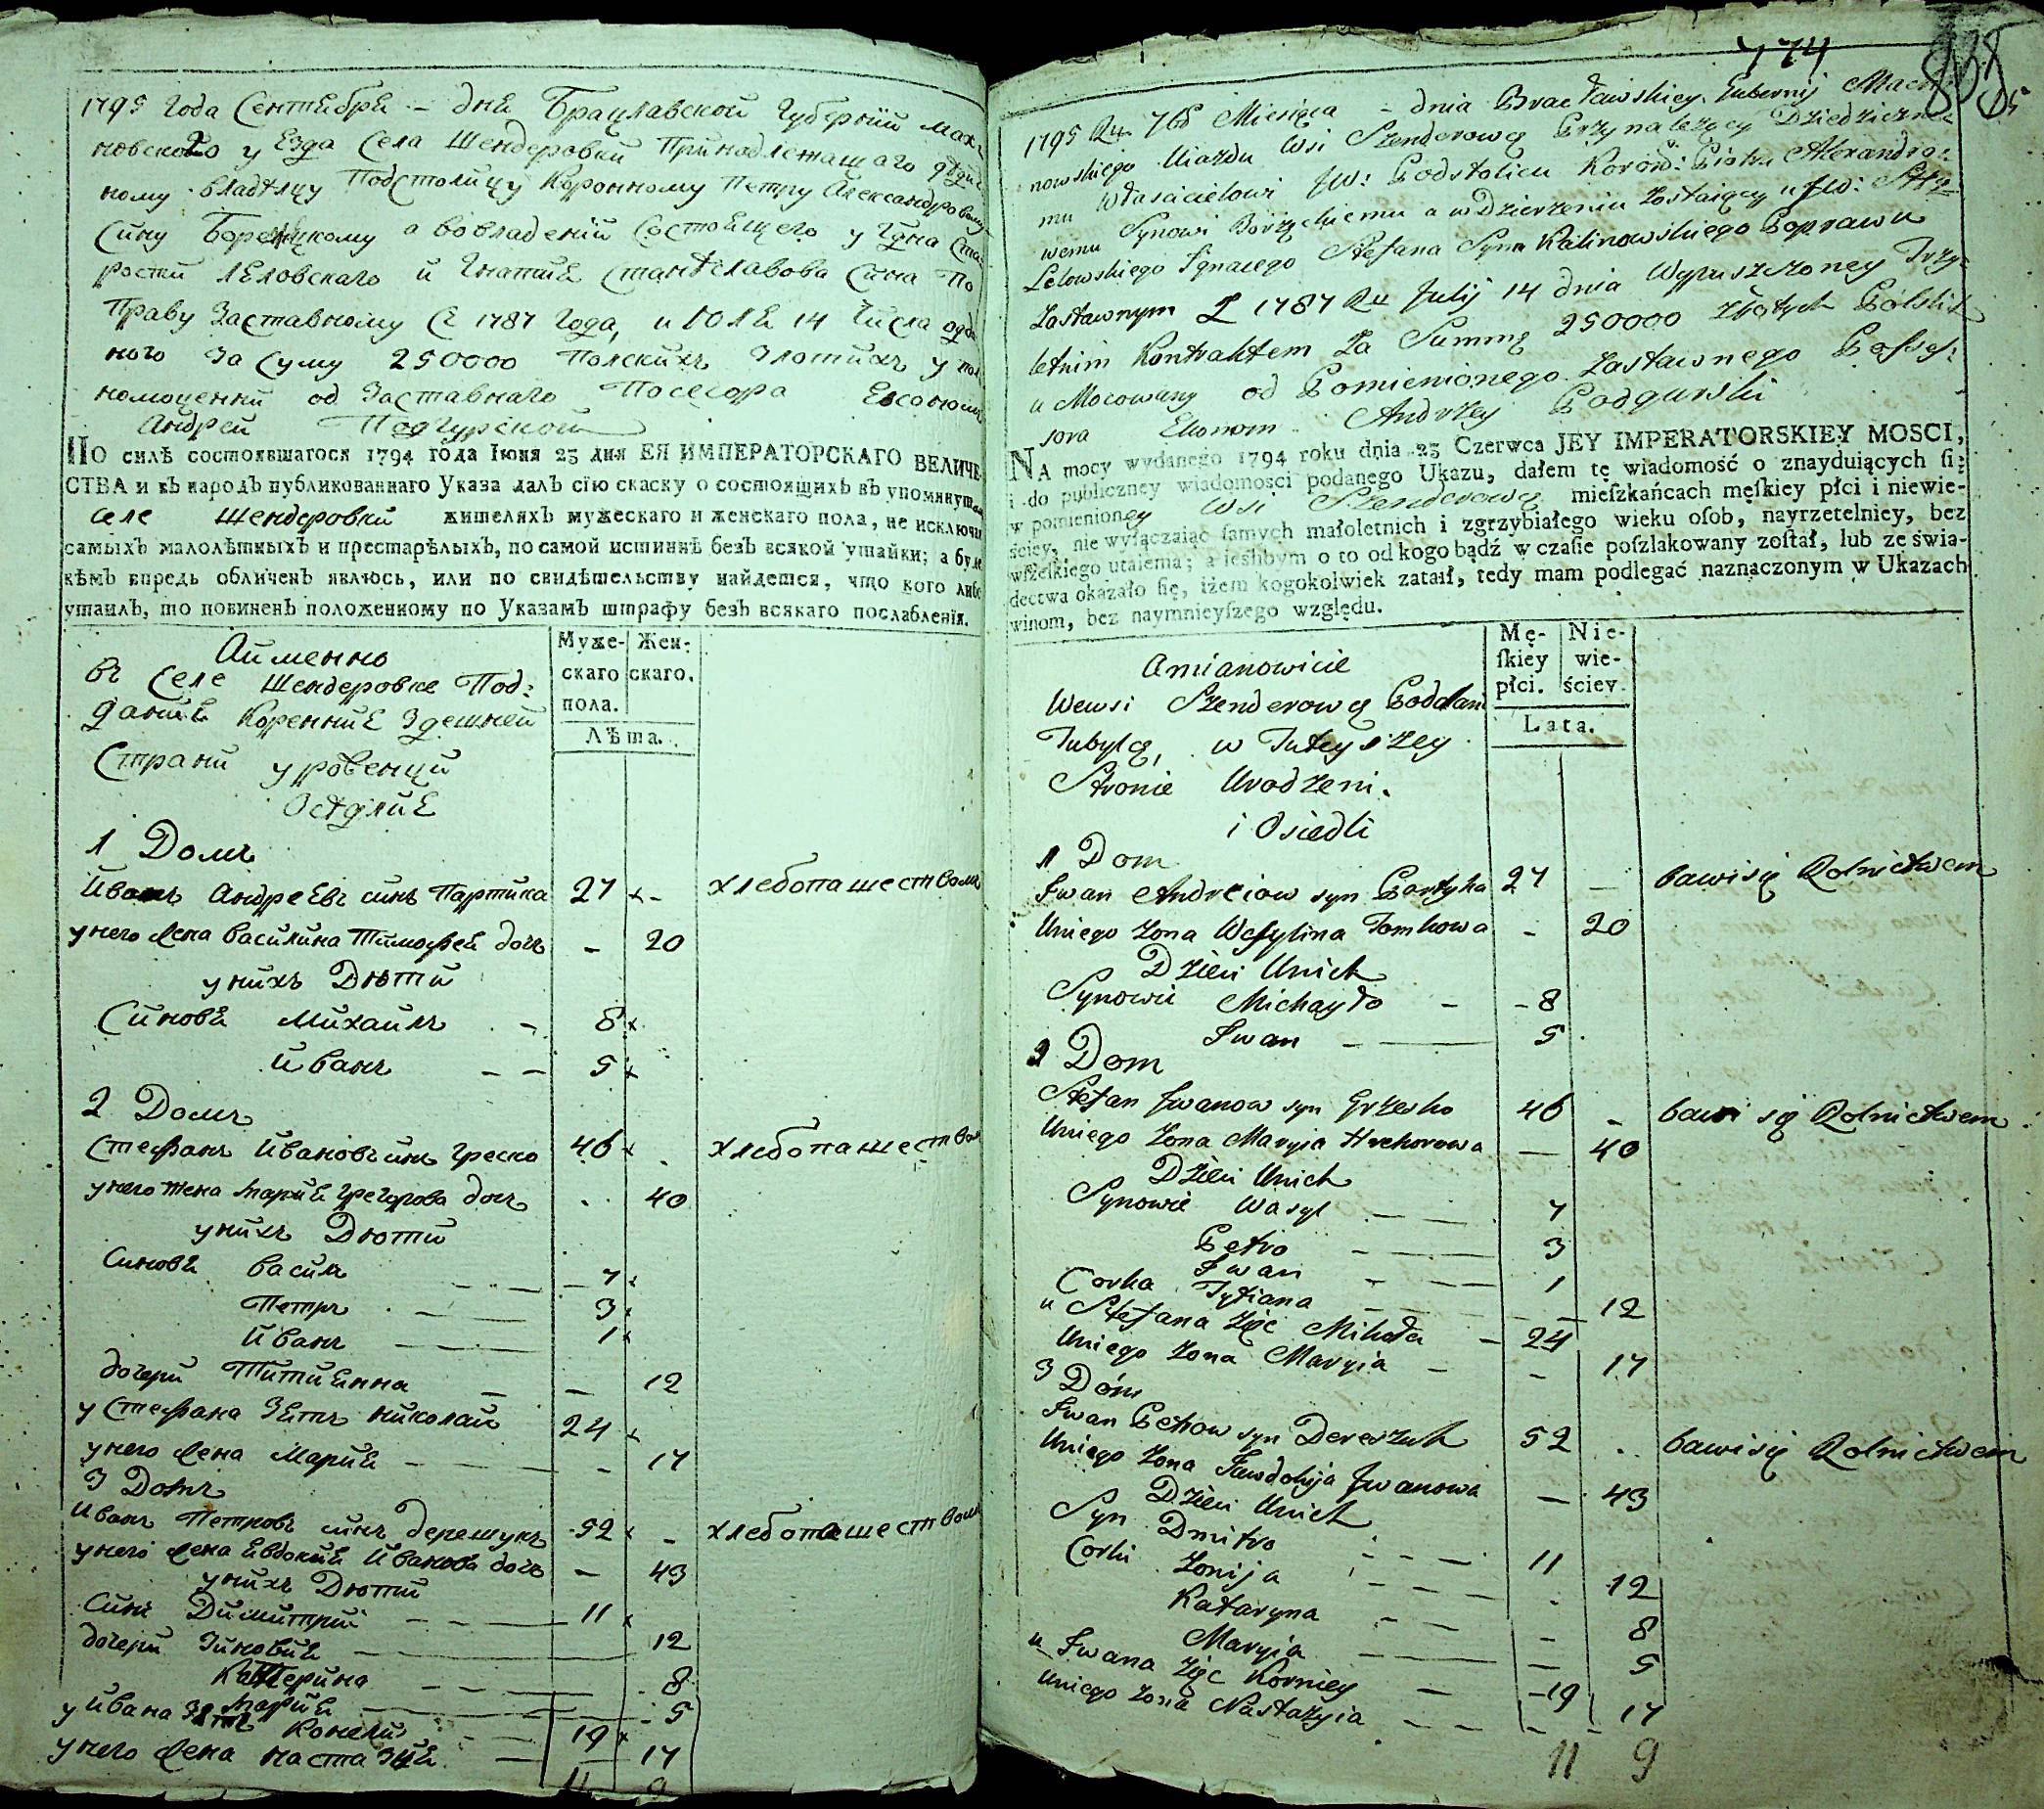 1795 Года Сентября – дня Брацлавской Губернии Мах:
новского уезда села Шендеровки Принадлежащаго дедич
ному владелцу Подстолицу Коронному Петру Александровому
Сину Борецкому а во владении состоящего у Гдна Ста
рости Леловскаго и Игнатия Станиславова Сина По
Праву Заставному С 1787 Года, июля 14 числа одан
ного За Суму 250000 Полских Злотих у пол
номоценний од Заставнаго Посесора Економ
Андрей Подгурской
ПО силѣ состоявшагося 1794 года Іюня 23 дня ЕЯ ИМПЕРАТОРСКАГО ВЕЛИЧЕ-
СТВА и въ народъ публикованнаго Указа далъ сію скаску о состоящихъ въ упомянутом
селе Шендеровки жителяхъ мужескаго и женскаго пола, не исключая
самыхъ малолѣтныхъ и престарѣлыхъ, по самой истиннѣ безъ всякой утайки; а буде
кѣмъ впредь обличенъ явлюсь, или по свидѣтельству найдется, что кого либо
утаилъ, то повиненъ положенному по Указамъ штрафу безъ всякаго послабленія.
Муже-
скаго
пола.
Жен-
скаго.
Лѣта.
Аименно
въ Селе Шендеровке Под:
дание Коренние Здешней
Страни уровенци
Оседлие
1 Домъ
Иванъ Андреевъ синъ Партика 27 × – хлебопашеством
у него жена Василина Тимофей дочь – 20
у нихъ Дюти
Синови Михаилъ – 8 ×
Иванъ – – 5 ×
2 Домъ
Стефанъ Ивановъ синъ Греско 46 × хлебопашеством
у него жена Мария Грегорова дочь 40
у нихъ Дюти
Синови Василъ – 7 ×
Петръ – 3 ×
Иванъ – 1 ×
дочери Титиянна – – 12
у Стефана Зять Николай 24 ×
у него жена Мария – – 17
3 Домъ
Иванъ Петровъ синъ Дерешукъ 52 × – хлебопашеством
у него жена Евдокия Иванова дочь – 43
у нихъ Дюти
Синъ Димитрий – 11 ×
дочери Зиновия – 12
Катерина – 8
Мария – 5
у Ивана Зять Корнели 19 ×
у него жена Настазия – 17
11 9
774
1795 Ru 7br Miesięca – dnia Bracławskiey Gubernij Mach:
nowskiego Uiazdu Wsi Szenderowcę Przynależącey Dziedziczne
mu Właścicielowi JW: Podstolicu Koron: Piotru Alexandro:
wemu Synowi Borzęckiemu a w Dzierżeniu zostaiącey u JW: Stty
Lelowskiego Ignacego Stefana Syna Kalinowskiego Poprawu
Zastawnym z 1787 Ru Julij 14 dnia Wypuszczoney Trzy:
letnim Kontraktem za Summę 250000 złotych Polskich
u Mocowany od Pomienionego Zastawnego Posses:
sora Ekonom Andrzey Podgurski
NA mocy wydanego 1794 roku dnia 23 Czerwca JEY IMPERATORSKIEY MOSCI,
i do publiczney wiadomości podanego Ukazu, dałem tę wiadomość o znayduiących ſię
w pomienioney Wsi Szenderowcę mieſzkańcach męſkiey płci i niewie-
ściey, nie wyłączaiąc ſamych małoletnich i zgrzybiałego wieku oſob, nayrzetelniey, bez
wſzelkiego utaienia; a ieśliibym o to od kogo bądź w czaſie poſzlakowany zoſtał, lub ze świa-
dectwa okazało ſię, iżem kogokolwiek zataił, tedy mam podlegać naznaczonym w Ukazach
winom, bez naymnieyſzego względu.
Mę-
ſkiey
płci.
Nie-
wie-
ściey.
Lata.
Amianowicie
Wewsi Szenderowcę Poddani
Tubylcę, w Tuteyszey
Stronie Urodzeni.
i Osiedli
1 Dom
Iwan Andreiow syn Partyka 27 – bawi się Rolnictwem
Uniego Zona Wasylina Tomkowa – 20
Dzieci Unich
Synowie Michayło – – 8
Iwan – 5
2 Dom
Stefan Iwanow syn Grzesko 46 – bawi się Rolnictwem
Uniego Zona Maryia Hrehorowa – 40
Dzieci Unich
Synowie Wasyl – 7
Petro – 3
Iwan – 1
Corka Tytiana – 12
u Stefana Zięć Mikoła – 24
Uniego Zona Maryia – – 17
3 Dom
Iwan Petrow syn Dereszuk 52 bawi się Rolnictwem
Uniego Zona Jawdokija Iwanowa – 43
Dzieci Unich
Syn Dmitro – 11
Corki Zonija – 12
Kataryna – 8
Maryia – 5
u Iwana Zięć Korniey – 19
Uniego Zona Nastazyia – 17
11 9